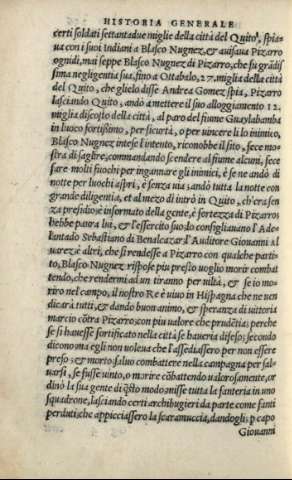 HISTORIA GENERALE
certi soldati settantadue miglie della città del Quito, spia-
ua con i suoi Indiani a Blasco Nugnez, & auisaua Pizarro
ognidì, mai seppe Blasco Nugnez di Pizarro, che fu grādis
sima negligentia sua, fino a Ottabalo, 27. miglia della città
del Quito, che glielo disse Andrea Gomez spia, Pizarro
lasciando Quito, andò a mettere il suo alloggiamento 12.
miglia discosto della città, al paro del fiume Guaylabamba
in luoco fortissimo, per sicurtà, o per uincere li lo inimico,
Blasco Nugnez intese l'intento, riconobbe il sito, fece mo-
stra di saglire, commandando scendere al fiume alcuni, fece
fare molti fuochi per ingannare gli inimici, è se ne andò di
notte per luochi aspri, è senza uia; andò tutta la notte con
grande diligentia, et al mezo dì intrò in Quito, ch'era sen
za presidio; è informato della gente, è fortezza di Pizarro;
hebbe paura lui, & l'essercito suo; lo consigliauano l'Ade-
lantado Sebastiano di Benalcazar l'Auditore Giouanni al
uarez, è altri, che si rendesse a Pizarro con qualche parti-
to, Blasco Nugnez rispose piu presto uoglio morir combat
tendo, che rendermi ad un tiranno per uiltà, & se io mo-
riro nel campo, il nostro Re è uiuo in Hispagna che ne uen
dicarà tutti, & dando buon animo, & speranza di uittoria
marciò cōtra Pizarro; con piu ualore che prudētia; perche
se si hauesse fortificato nella città se haueria difeso; secondo
dicono ma egli non uoleua che l'assediassero per non essere
preso; & morto saluo combattere nella campagna per sal-
uarsi, se fusse uinto, o morire cōbattendo ualorosamente, or
dinò la sua gente di q̄sto modo, misse tutta la fanteria in uno
squadrone, lasciando certi archibugieri da parte come fanti
perduti; che appicciassero la scaramuccia, dandogli; p capo
Giouanni